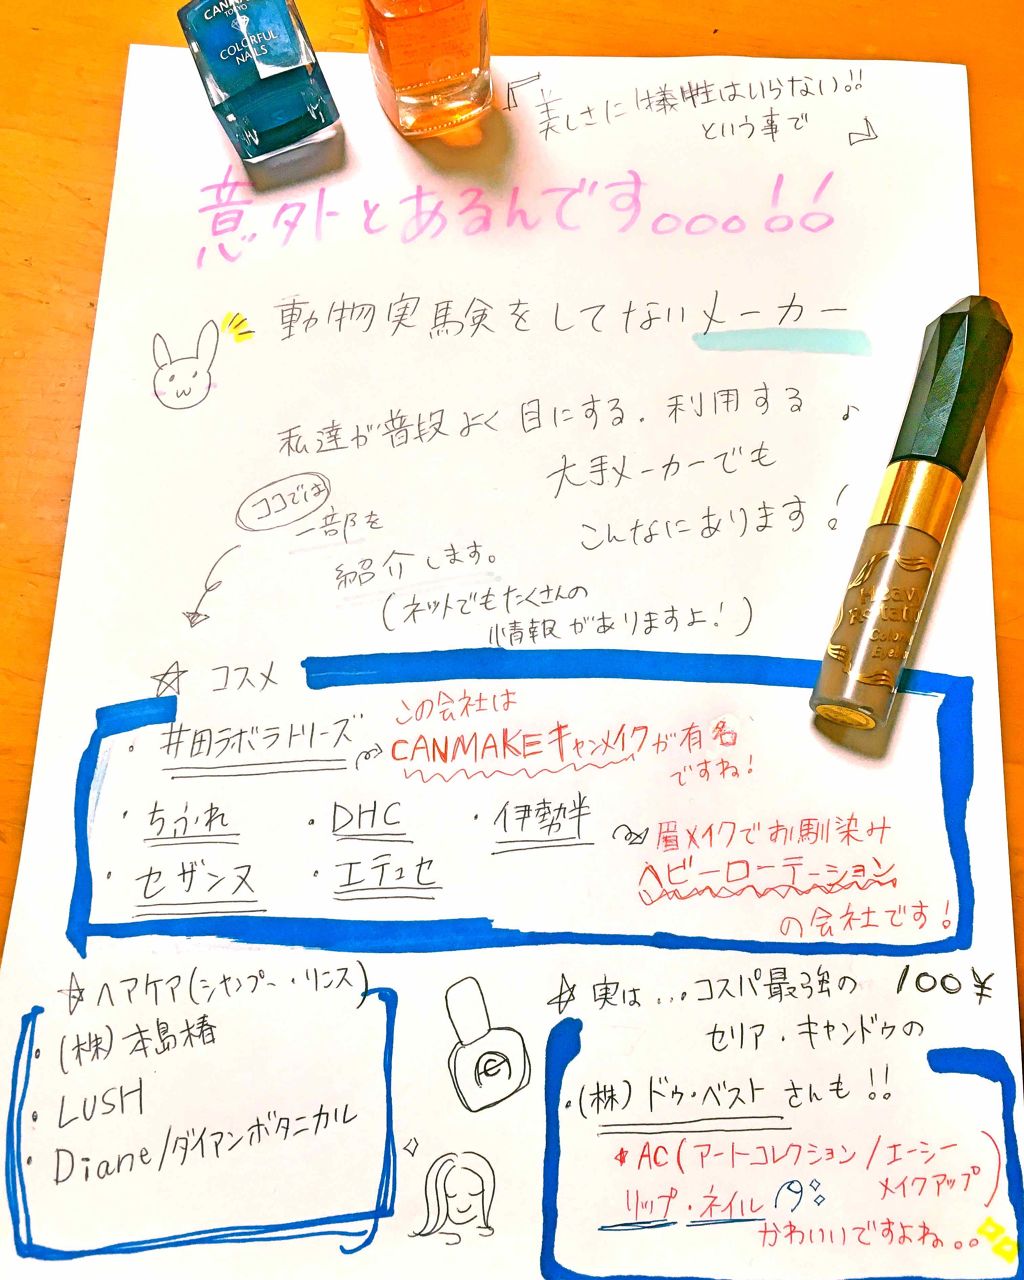 CANMA
TOKYO
COLORFUL
NAILS
美しさに犠牲はいらない!!
という事で
意外とあるんです。。。。!!
動物実験をしてないメーカー
私達が普段よく目にする、利用する♪
大手メーカーでも
こんなにあります!
ココでは
一部を
紹介します。
(ネットでもたくさんの
情報がありますよ!)
Heavy
Rotati
Colorin
Eyebr
☆ コスメ
・井田ラボラトリーズ
この会社は
CANMAKEキャンメイクが有名
ですね!
・ちふれ ・DHC ・伊勢半
・セザンヌ ・エテュセ
眉メイクでお馴染み
ヘビーローテーション
の会社です!
☆ヘアケア(シャンプー・リンス)
・(株)本島椿
・LUSH
・Diane/ダイアンボタニカル
☆実は...コスパ最強の 100¥
セリア・キャンドゥの
・(株)ドゥ・ベストさんも!!
★AC(アートコレクション/エーシー
メイクアップ)
リップ・ネイル
かわいいですよね。。